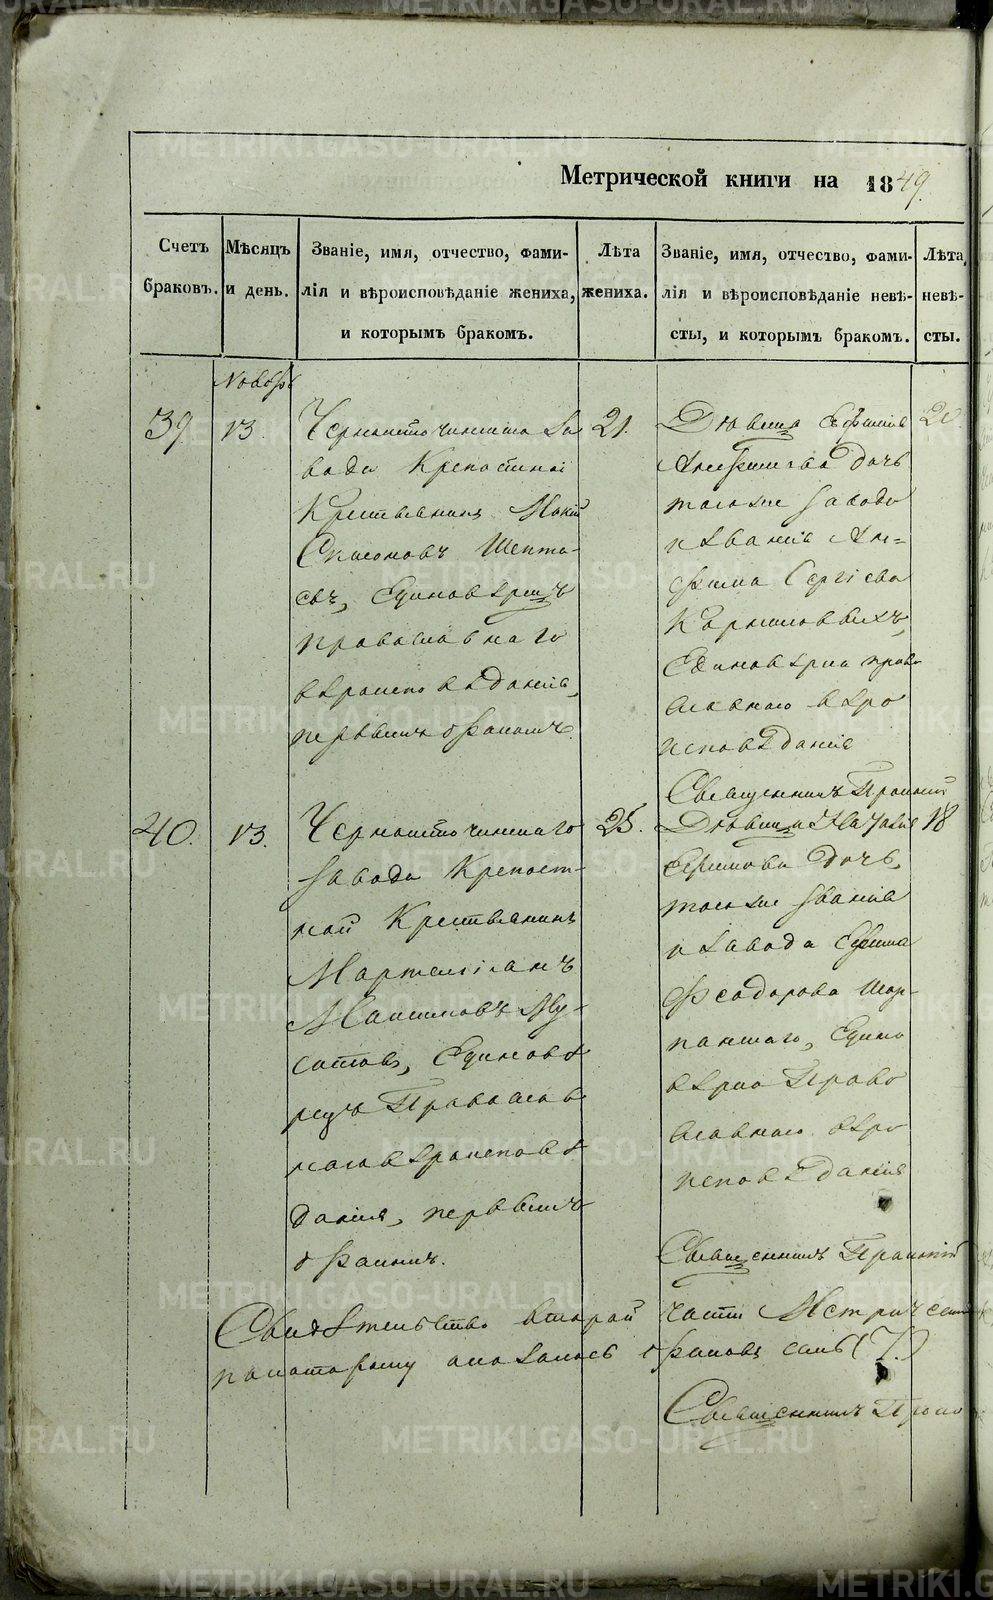 Метрической книги на 1849.
Счетъ браковъ.
Мѣсяцъ и день.
Званіе, имя, отчество, фами-
лія и вѣроисповѣданіе жениха,
и которымъ бракомъ.
Лѣта
жениха.
Званіе, имя, отчество, фами-
лія и вѣроисповѣданіе невѣ-
сты, и которымъ бракомъ.
Лѣта
невѣ-
сты.
Ноябрь
39
13.
Черноисточинскаго За
вода Крепостной
Крестьянинъ
единовѣрецъ
православнаго
вѣроисповѣданія,
первымъ бракомъ.
21.
Дѣвица
дочь
того же завода
и званія
Сергіева
единовѣрца право
славнаго вѣро
исповѣданія
Священникъ
40.
13.
Черноисточинскаго
завода Крепост-
ной Крестьянинъ
Мартиніанъ
Максимовъ Му-
сатовъ, Единовѣ
рецъ Православ
наго вѣроисповѣ
данія, первымъ
бракомъ.
25.
Дѣвица Наталія
Ефимова дочь,
того же званія
и завода Ефима
Феодорова
Едино
вѣрца Право
славнаго вѣро
исповѣданія
18
Священникъ
второй части Метрической
по которому оказалось браковъ семь (7.)
Священникъ
METRIKI.GASO-URAL.RU